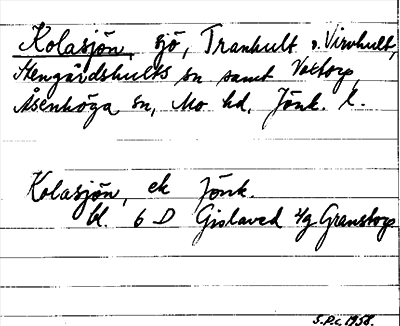 Kolasjön, sjö, Tranhult o. Virvhult,
Stengårdshults sn samt Voxtorp,
Åsenhöga sn, Mo hd, Jönk. l.
Kolasjön, ek Jönk.
bl. 6 D Gislaved s/g Granstorp
S.P.c. 1958.